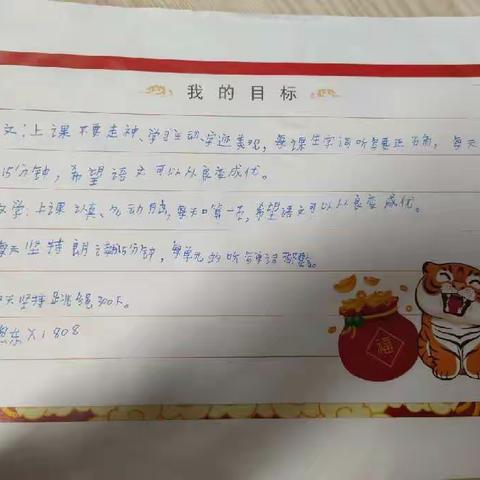 我的目标
文：上课不要走神、学习主动、字迹美观，每课生字词听写要正确，每天
15分钟，希望语文可以从良变成优。
数学：上课认真、动脑，每天口算一页，希望语文可以从良变成优。
每天坚持朗读15分钟，每单元的听写单词
天坚持跳绳300下。
1808
福